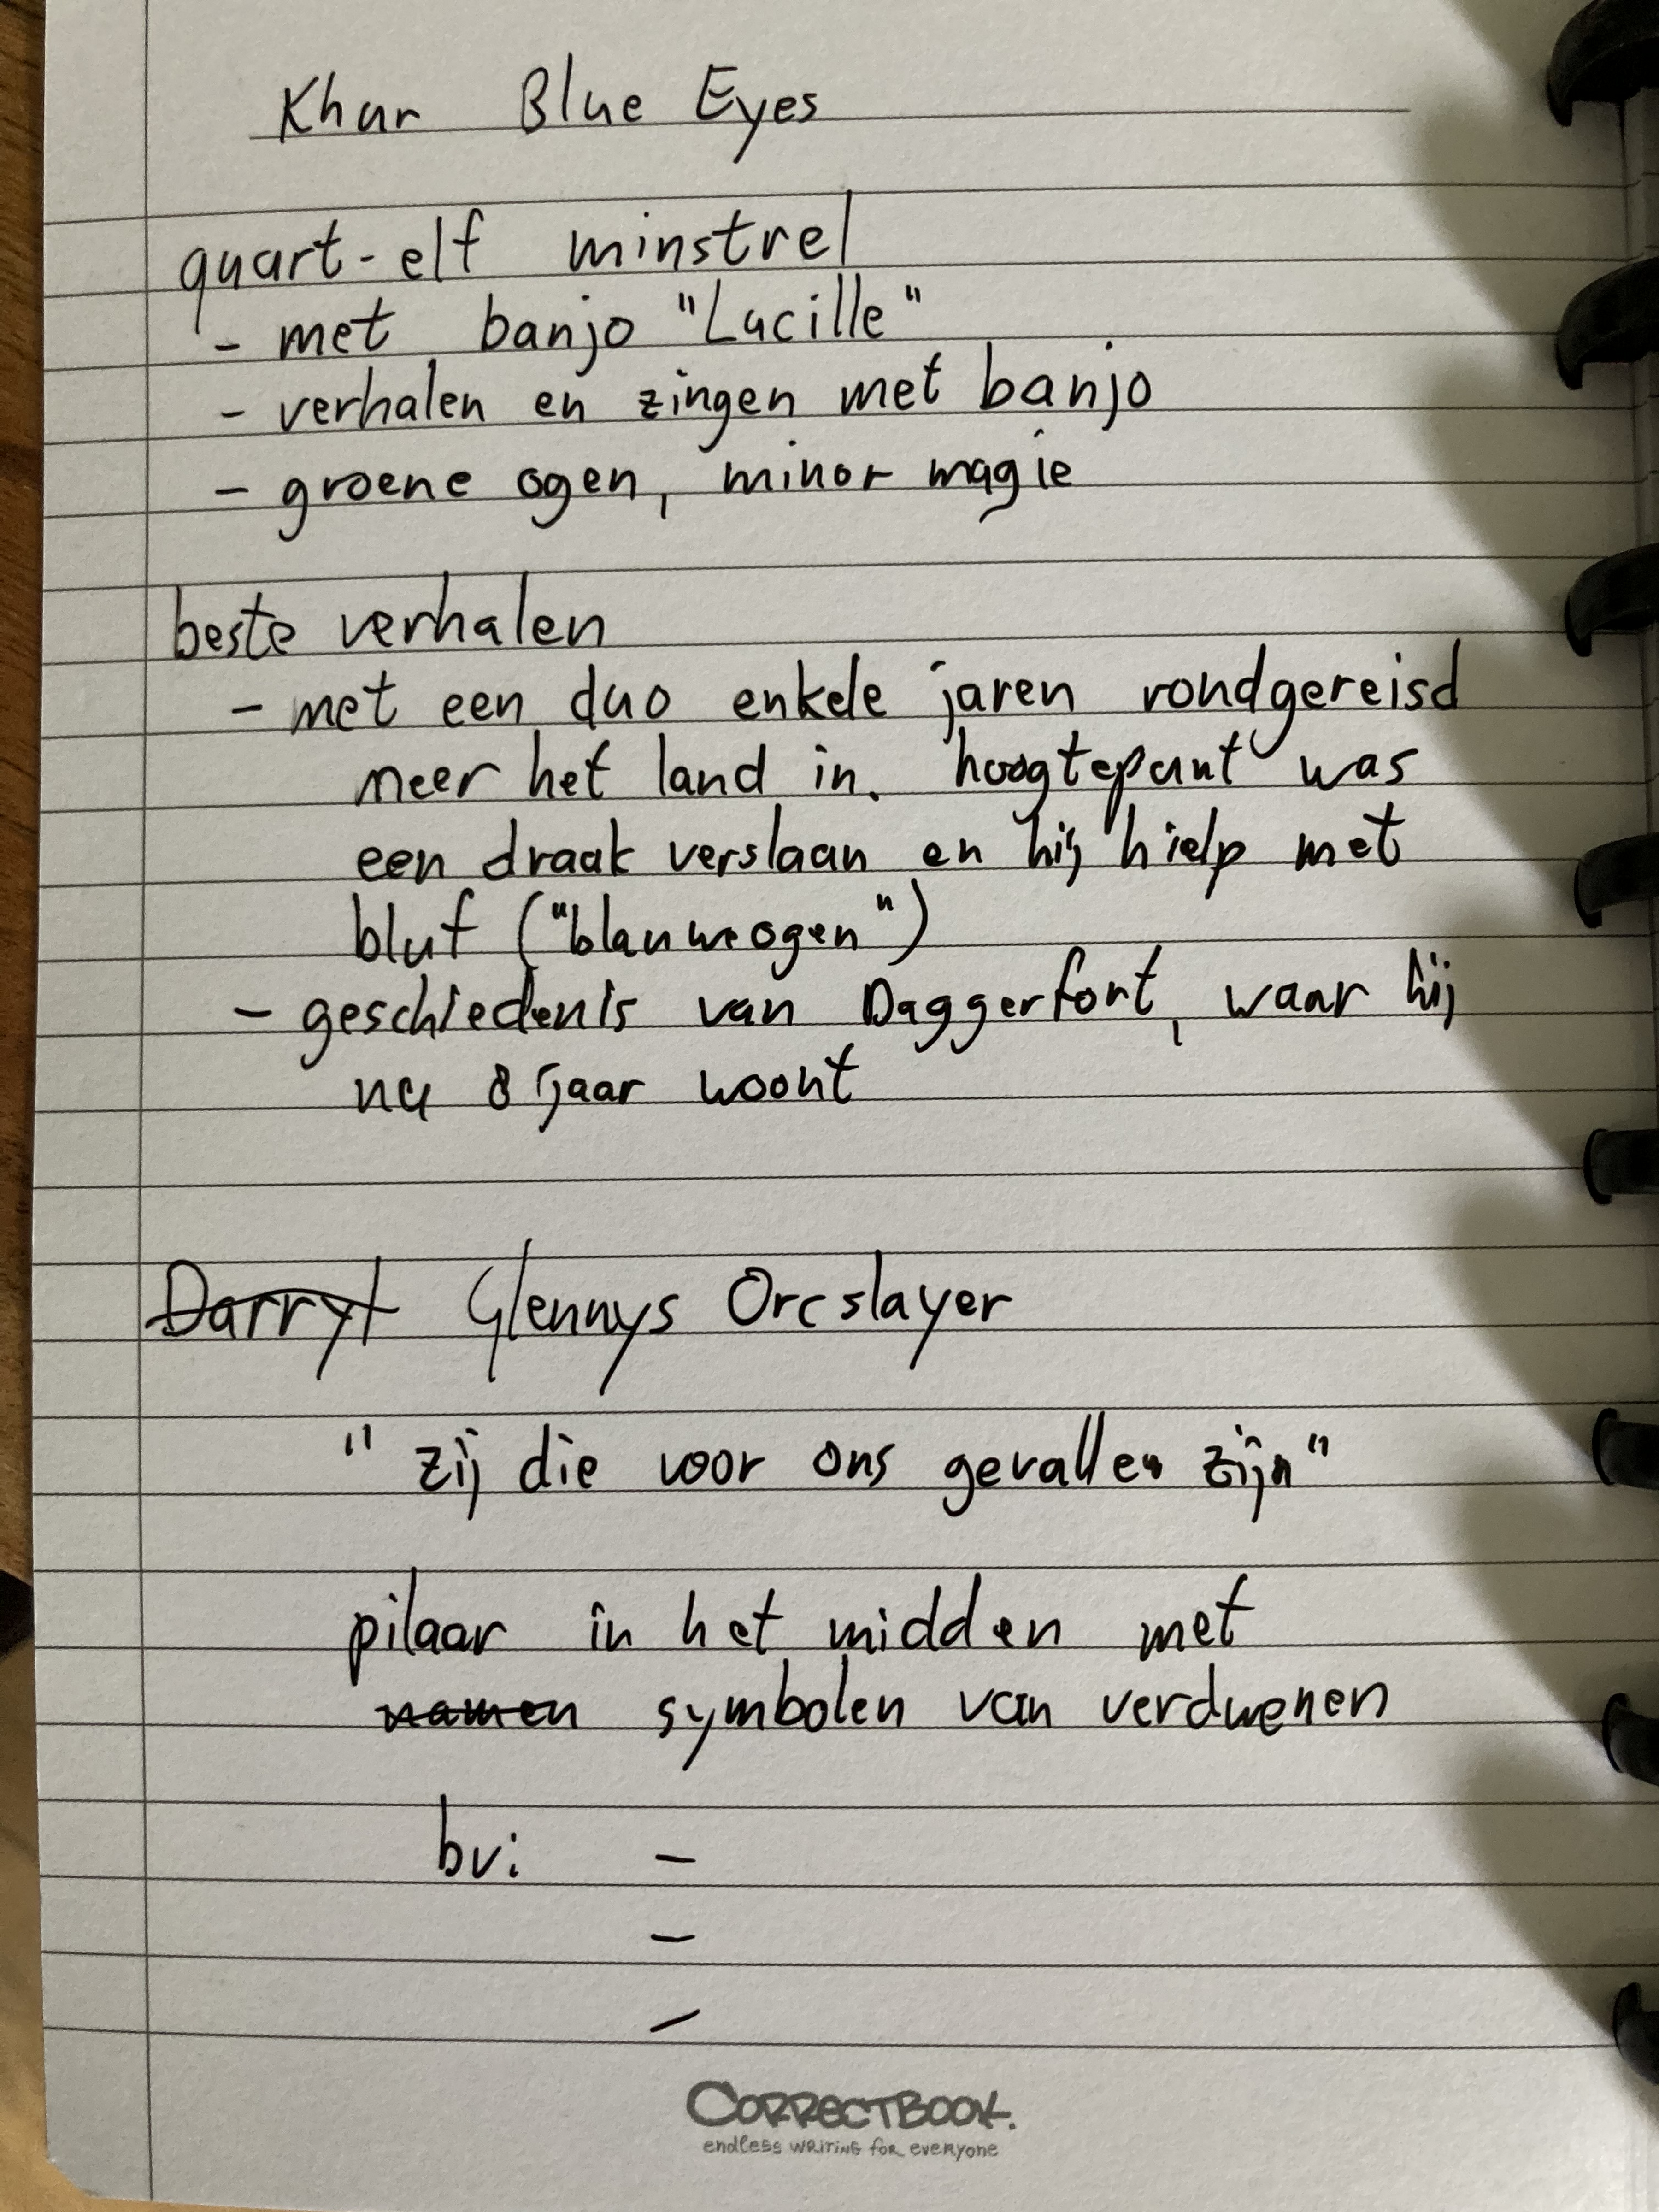 Khur Blue Eyes
quart-elf minstrel
- met banjo "Lucille"
- verhalen en zingen met banjo
- groene ogen, minor magie
beste verhalen
- met een duo enkele jaren rondgereisd
meer het land in. hoogtepunt was
een draak verslaan en hij hielp met
bluf ("blauwe ogen")
- geschiedenis van Daggerfort, waar hij
nu 8 jaar woont
Darryl Glennys Orcslayer
"zij die voor ons gevallen zijn"
pilaar in het midden met
namen symbolen van verdwenen
bv: -
-
-
CORRECTBOOK.
endless WRITING for everyone